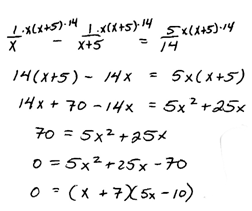 1/x · x(x+5) · 14 - 1/x+5 · x(x+5) · 14 = 5/14 x(x+5) · 14
14(x+5) - 14x = 5x(x+5)
14x + 70 - 14x = 5x² + 25x
70 = 5x² + 25x
0 = 5x² + 25x - 70
0 = (x + 7)(5x - 10)